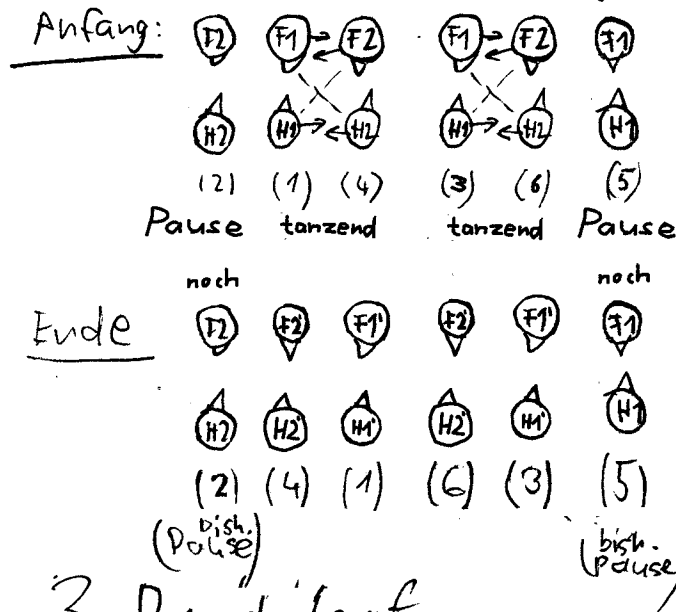 Anfang: F2 F1 F2 F1 F2 F1
H2 H1 H2 H1 H2 H1
(2) (1) (4) (3) (6) (5)
Pause tanzend tanzend Pause
noch noch
Ende F2 F2' F1' F2' F1' F1
H2 H2' H1' H2' H1' H1
(2) (4) (1) (6) (3) (5)
(bish. Pause) (bish. Pause
3. Durchlauf